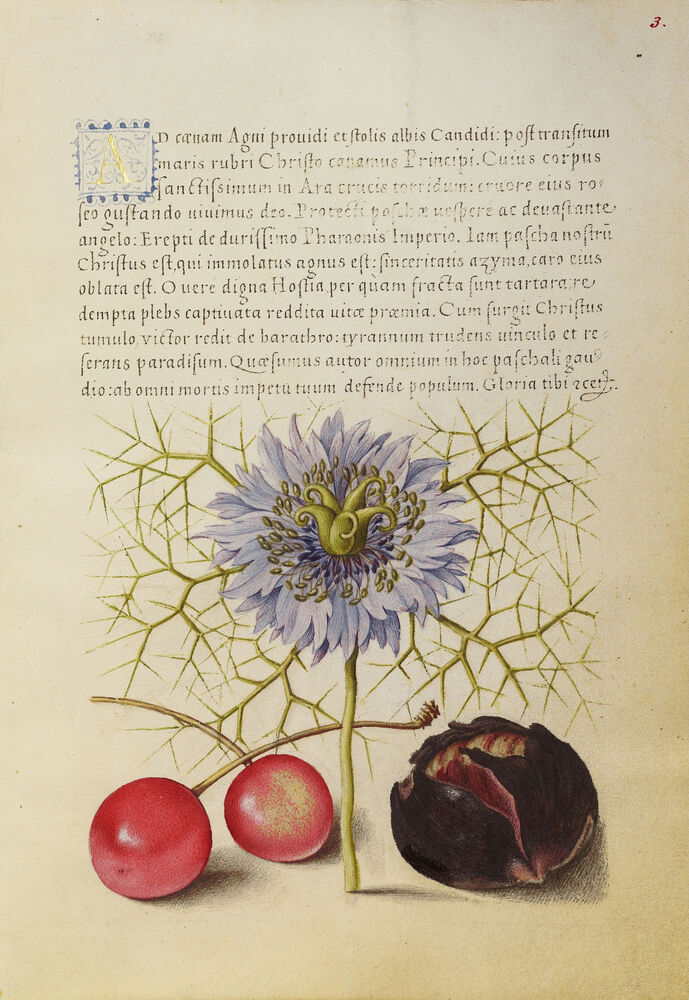 3.
AD cœnam Agni prouidi et stolis albis Candidi: post transitum
maris rubri Christo canamus Principi. Cuius corpus
sanctissimum in Ara crucis torridum: cruore eius ro-
seo gustando uiuimus deo. Protecti paschæ uespere ac deuastante
angelo: Erepti de durissimo Pharaonis Imperio. Iam pascha nostrũ
Christus est, qui immolatus agnus est: sinceritatis azyma, caro eius
oblata est. O uere digna Hostia, per quam fracta sunt tartara: re
dempta plebs captiuata reddita uitæ præmia. Cum surgit Christus
tumulo, victor redit de barathro: tyrannum trudens uinculo et re-
serans paradisum. Quæsumus autor omnium in hoc paschali gau
dio: ab omni mortis impetu tuum defende populum. Gloria tibi &cet.